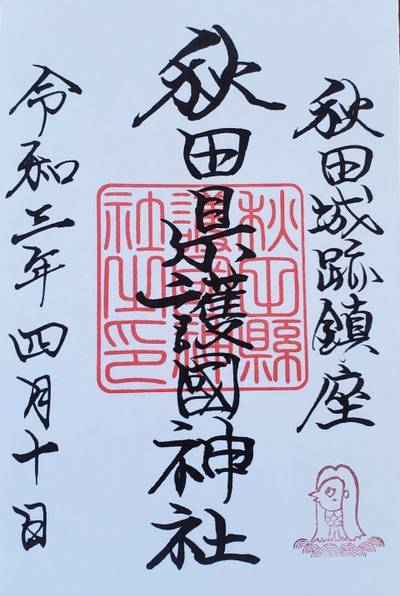 秋田城跡鎮座
秋田県護國神社
令和三年四月十日
秋田縣
護國神
社之印